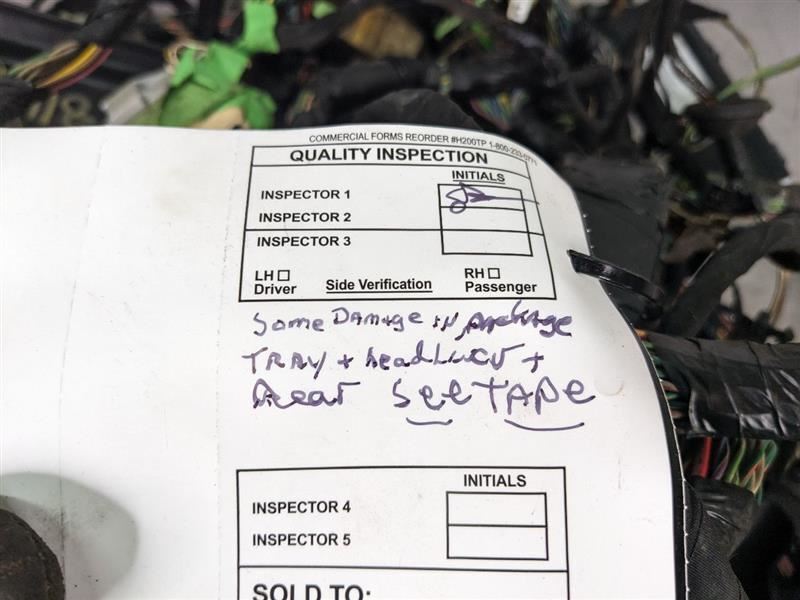 COMMERCIAL FORMS REORDER #H200TP 1-800-233-0771
QUALITY INSPECTION
INITIALS
INSPECTOR 1
INSPECTOR 2
INSPECTOR 3
LH
Driver
Side Verification
RH
Passenger
Some DAMage IN PAckage
TRAY +
+
Rear See TAPe
INITIALS
INSPECTOR 4
INSPECTOR 5
SOLD TO: